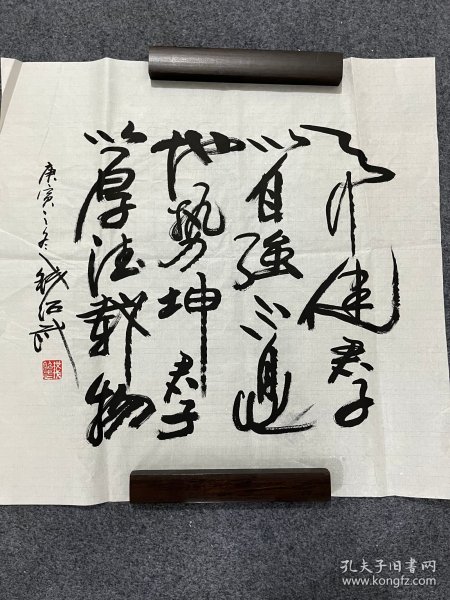 天行健君子
以自強不息
地势坤君子
以厚德載物
庚寅之冬钱绍武
孔夫子旧书网
www.kongfz.com